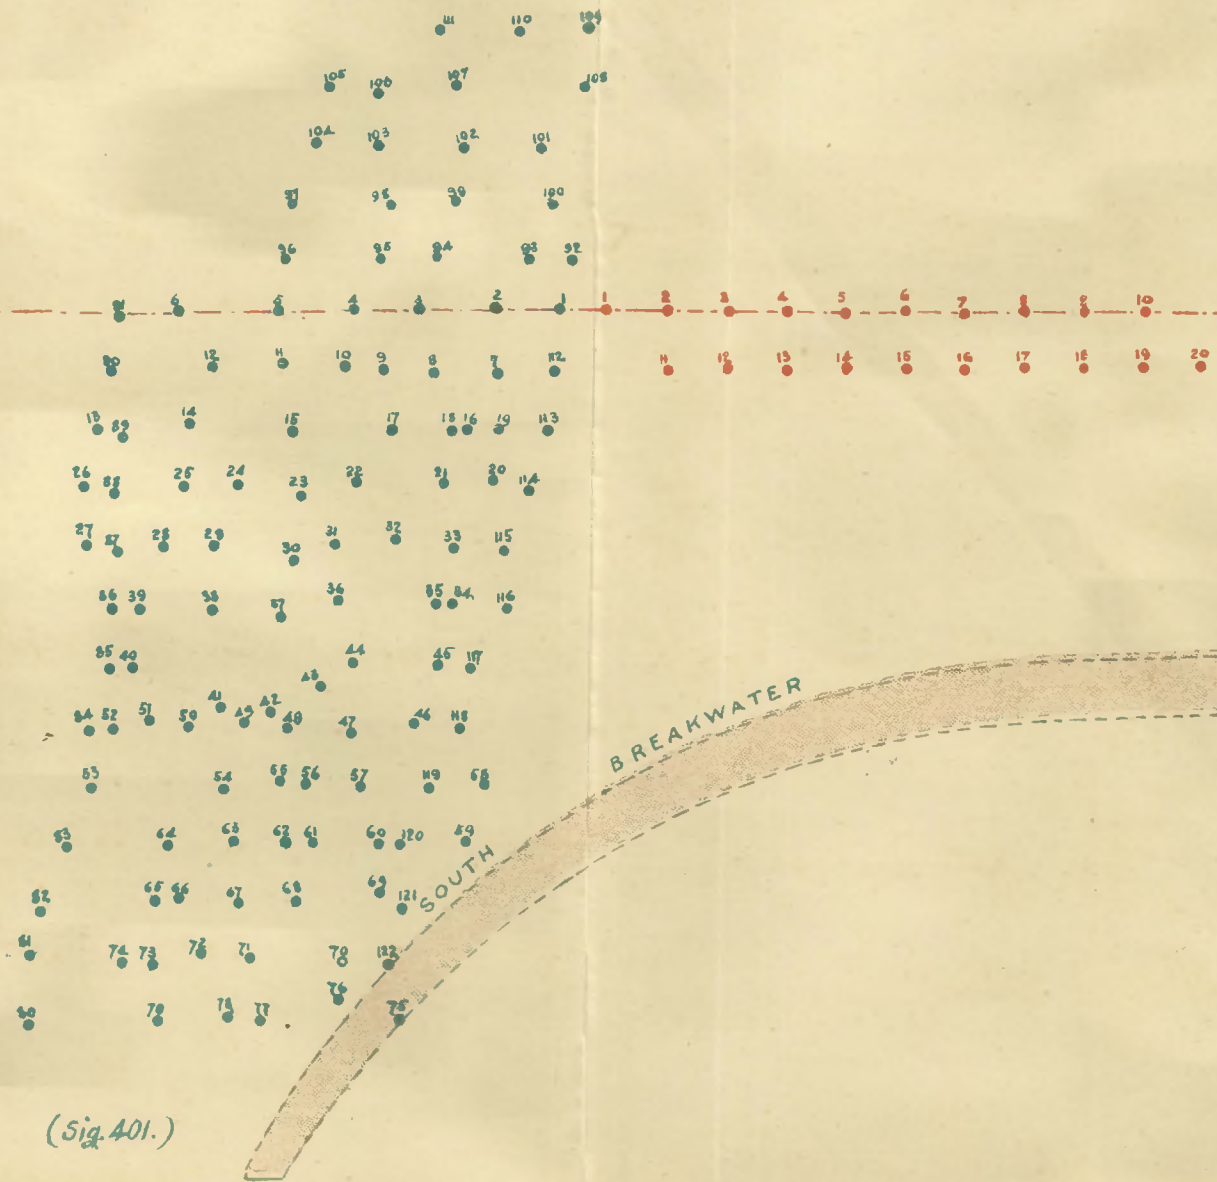 111 110 109
105 106 107 108
104 103 102 101
97 98 99 100
96 95 94 93 92
91 6 5 4 3 2 1 1 2 3 4 5 6 7 8 9 10
90 12 11 10 9 8 7 112 11 12 13 14 15 16 17 18 19 20
13 89 14 15 17 18 16 19 113
26 88 25 24 23 22 21 20 114
27 87 28 29 30 31 32 33 115
86 39 38 37 36 35 34 116
85 40 43 44 45 117
84 52 51 50 41 49 42 48 47 46 118
53 54 55 56 57 119 58
83 64 63 62 61 60 120 59
82 65 66 67 68 69 121
81 74 73 72 71 70 122
80 79 78 77 76 75
SOUTH BREAKWATER
(Sig. 401.)